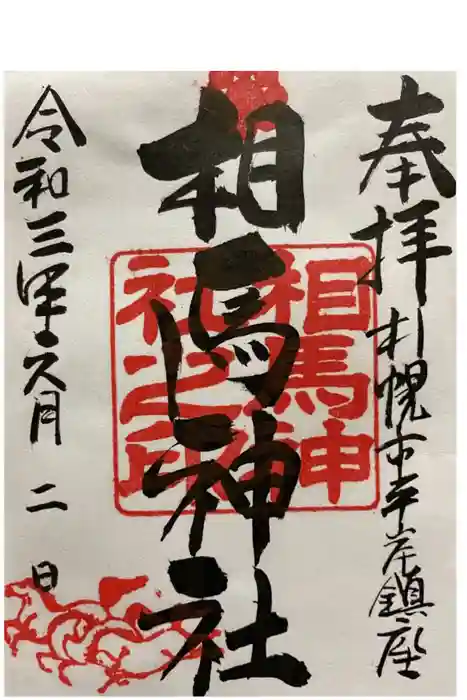 奉拝
札幌市平岸鎮座
相馬神社
相馬神
社之印
令和三年六月二日